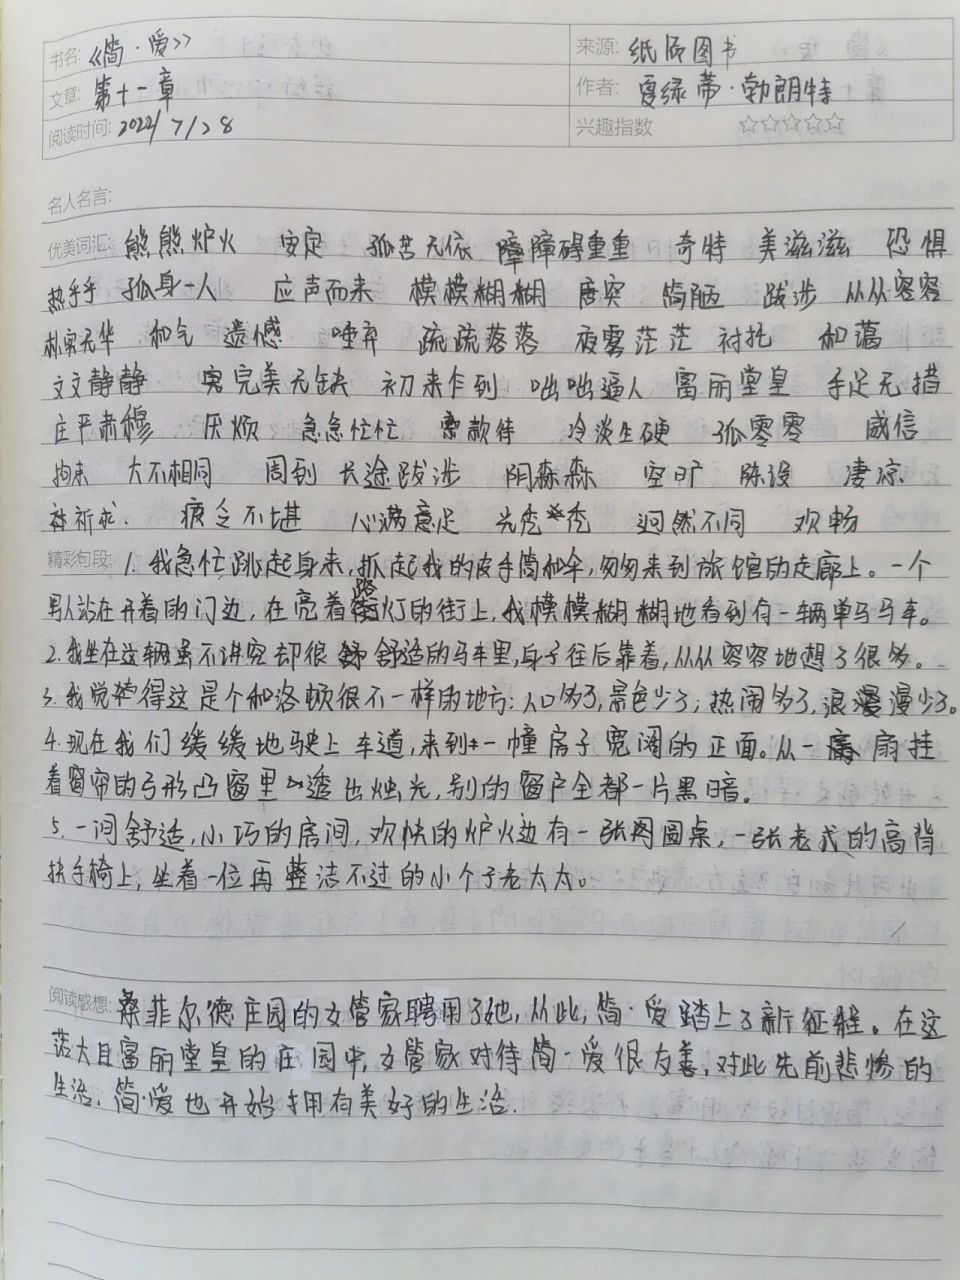 书名:《简·爱》 来源: 纸质图书
文章: 第十一章 作者: 夏绿蒂·勃朗特
阅读时间: 2022/7/28 兴趣指数 ☆☆☆☆☆
名人名言:
优美词汇: 熊熊炉火 安定 孤苦无依 障障碍重重 奇特 美滋滋 恐惧
热乎乎 孤身一人 应声而来 模模糊糊 唐突 简陋 跋涉 从从容容
朴实无华 和气 遗憾 唾弃 疏疏落落 夜雾茫茫 衬托 和蔼
文文静静 完美无缺 初来乍到 咄咄逼人 富丽堂皇 手足无措
庄严肃穆 厌烦 急急忙忙 款待 冷淡生硬 孤零零 威信
拘束 大不相同 周到 长途跋涉 阴森森 空旷 陈设 凄凉
祈求 疲乏不堪 心满意足 光秃秃 迥然不同 欢畅
精彩句段: 1. 我急忙跳起身来,抓起我的皮手筒和伞,匆匆来到旅馆的走廊上。一个
男人站在开着的门边,在亮着路灯的街上,我模模糊糊地看到有一辆单马马车。
2.我坐在这辆虽不讲究却很舒适的马车里,身子往后靠着,从从容容地想了很多。
3.我觉得这是个和洛顿很不一样的地方:人口多了,景色少了;热闹多了,浪漫少了。
4.现在我们缓缓地驶上车道,来到一幢房子宽阔的正面。从一扇挂
着窗帘的弓形凸窗里透出烛光,别的窗户全都一片黑暗。
5.一间舒适,小巧的房间,欢快的炉火边有一张圆桌,一张老式的高背
扶手椅上,坐着一位再整洁不过的小个子老太太。
阅读感想: 桑菲尔德庄园的女管家聘用了她,从此,简·爱踏上了新征程。在这
诺大且富丽堂皇的庄园中,女管家对待简·爱很友善,对此先前悲惨的
生活,简·爱也开始拥有美好的生活.